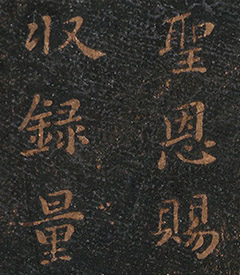 聖恩賜
収録量